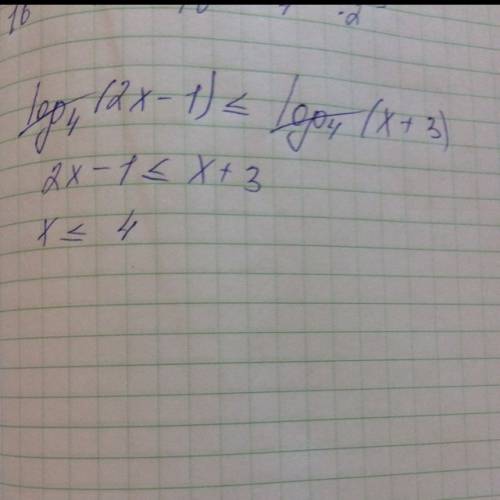 16
log₄(2x-1) ≤ log₄(x+3)
2x-1 ≤ x+3
x ≤ 4